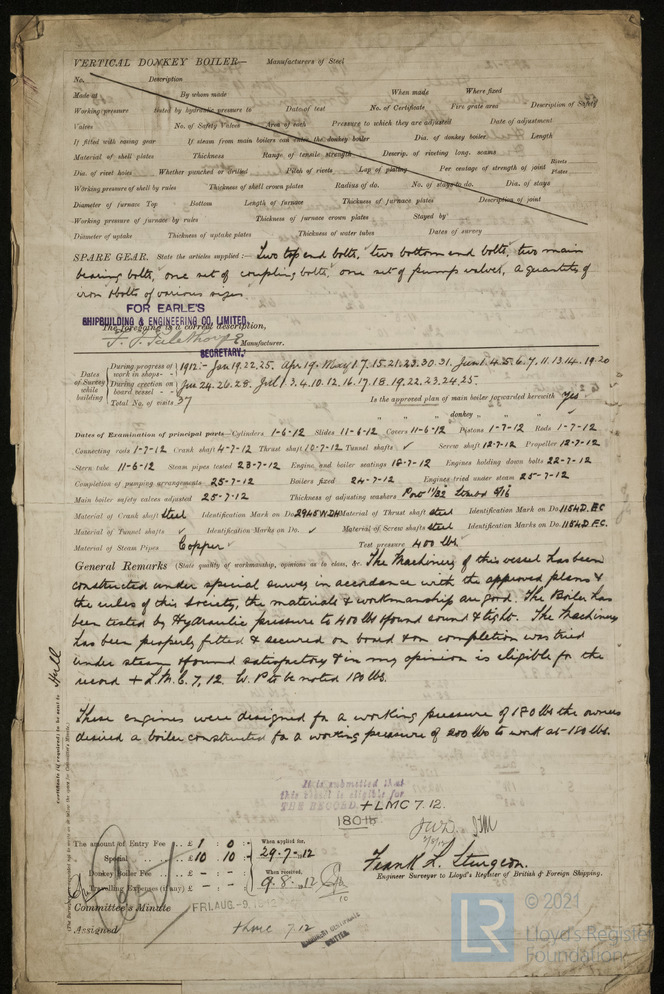 VERTICAL DONKEY BOILER— Manufacturers of Steel
No. Description
Made at By whom made When made Where fixed
Working pressure tested by hydraulic pressure to Date of test No. of Certificate Fire grate area Description of Safety
Valves No. of Safety Valves Area of each Pressure to which they are adjusted Date of adjustment
If fitted with easing gear If steam from main boilers can enter the donkey boiler Dia. of donkey boiler Length
Material of shell plates Thickness Range of tensile strength Descrip. of riveting long. seams
Dia. of rivet holes Whether punched or drilled Pitch of rivets Lap of plating Per centage of strength of joint Rivets Plates
Working pressure of shell by rules Thickness of shell crown plates Radius of do. No. of stays to do. Dia. of stays
Diameter of furnace Top Bottom Length of furnace Thickness of furnace plates Description of joint
Working pressure of furnace by rules Thickness of furnace crown plates Stayed by
Diameter of uptake Thickness of uptake plates Thickness of water tubes Dates of survey
SPARE GEAR. State the articles supplied:— Two top end bolts, two bottom end bolts, two main
bearing bolts, one set of coupling bolts, one set of pump valves, a quantity of
iron & bolts of various sizes.
FOR EARLE'S
SHIPBUILDING & ENGINEERING CO. LIMITED.
The foregoing is a correct description,
Manufacturer.
SECRETARY.
Dates of Survey while building
During progress of work in shops - - 1912:- Jan 19.22.25. Apr 19. May 1.7.15.21.23.30.31. Jun 1.4.5.6.7.11.13.14.19.20
During erection on board vessel - - Jun 24.26.28. Jul 1.3.4.10.12.16.17.18.19.22.23.24.25.
Total No. of visits 37 Is the approved plan of main boiler forwarded herewith Yes
" " " donkey " " "
Dates of Examination of principal parts—Cylinders 1-6-12 Slides 11-6-12 Covers 11-6-12 Pistons 1-7-12 Rods 1-7-12
Connecting rods 1-7-12 Crank shaft 4-7-12 Thrust shaft 10-7-12 Tunnel shafts ✓ Screw shaft 12-7-12 Propeller 12-7-12
Stern tube 11-6-12 Steam pipes tested 23-7-12 Engine and boiler seatings 18-7-12 Engines holding down bolts 22-7-12
Completion of pumping arrangements 25-7-12 Boilers fixed 24-7-12 Engines tried under steam 25-7-12
Main boiler safety valves adjusted 25-7-12 Thickness of adjusting washers Port 11/32 Starbd 9/16
Material of Crank shaft Steel Identification Mark on Do. 2945WDH Material of Thrust shaft Steel Identification Mark on Do. 1154D.F.C
Material of Tunnel shafts ✓ Identification Marks on Do. ✓ Material of Screw shafts Steel Identification Marks on Do. 1154D.F.C.
Material of Steam Pipes Copper Test pressure 400 lbs
General Remarks (State quality of workmanship, opinions as to class, &c. The Machinery of this vessel has been
constructed under special survey in accordance with the approved plans &
the rules of this Society, the materials & workmanship are good. The Boiler has
been tested by Hydraulic pressure to 400 lbs & found sound & tight. The Machinery
has been properly fitted & secured on board & on completion was tried
under steam & found satisfactory & in my opinion is eligible for the
record + L.M.C. 7, 12. W. P to be noted 180 lbs.
These engines were designed for a working pressure of 180 lbs the owners
desired a boiler constructed for a working pressure of 200 lbs to work at 180 lbs.
Certificate (if required) to be sent to Hull
It is submitted that
this vessel is eligible for
THE RECORD. + LMC 7.12.
180 lb
The amount of Entry Fee .. £ 1 : 0 : When applied for,
Special .. £ 10 : 10 : 29.7.12
Donkey Boiler Fee .. £ - : - : When received,
Travelling Expenses (if any) £ - : - : 9.8.12
Frank L. Sturgeon.
Engineer Surveyor to Lloyd's Register of British & Foreign Shipping.
Committee's Minute FRI.AUG-9.1912
Assigned + LMC 7.12
MACHINERY CERTIFICATE
WRITTEN.
LR
© 2021
Lloyd's Register
Foundation